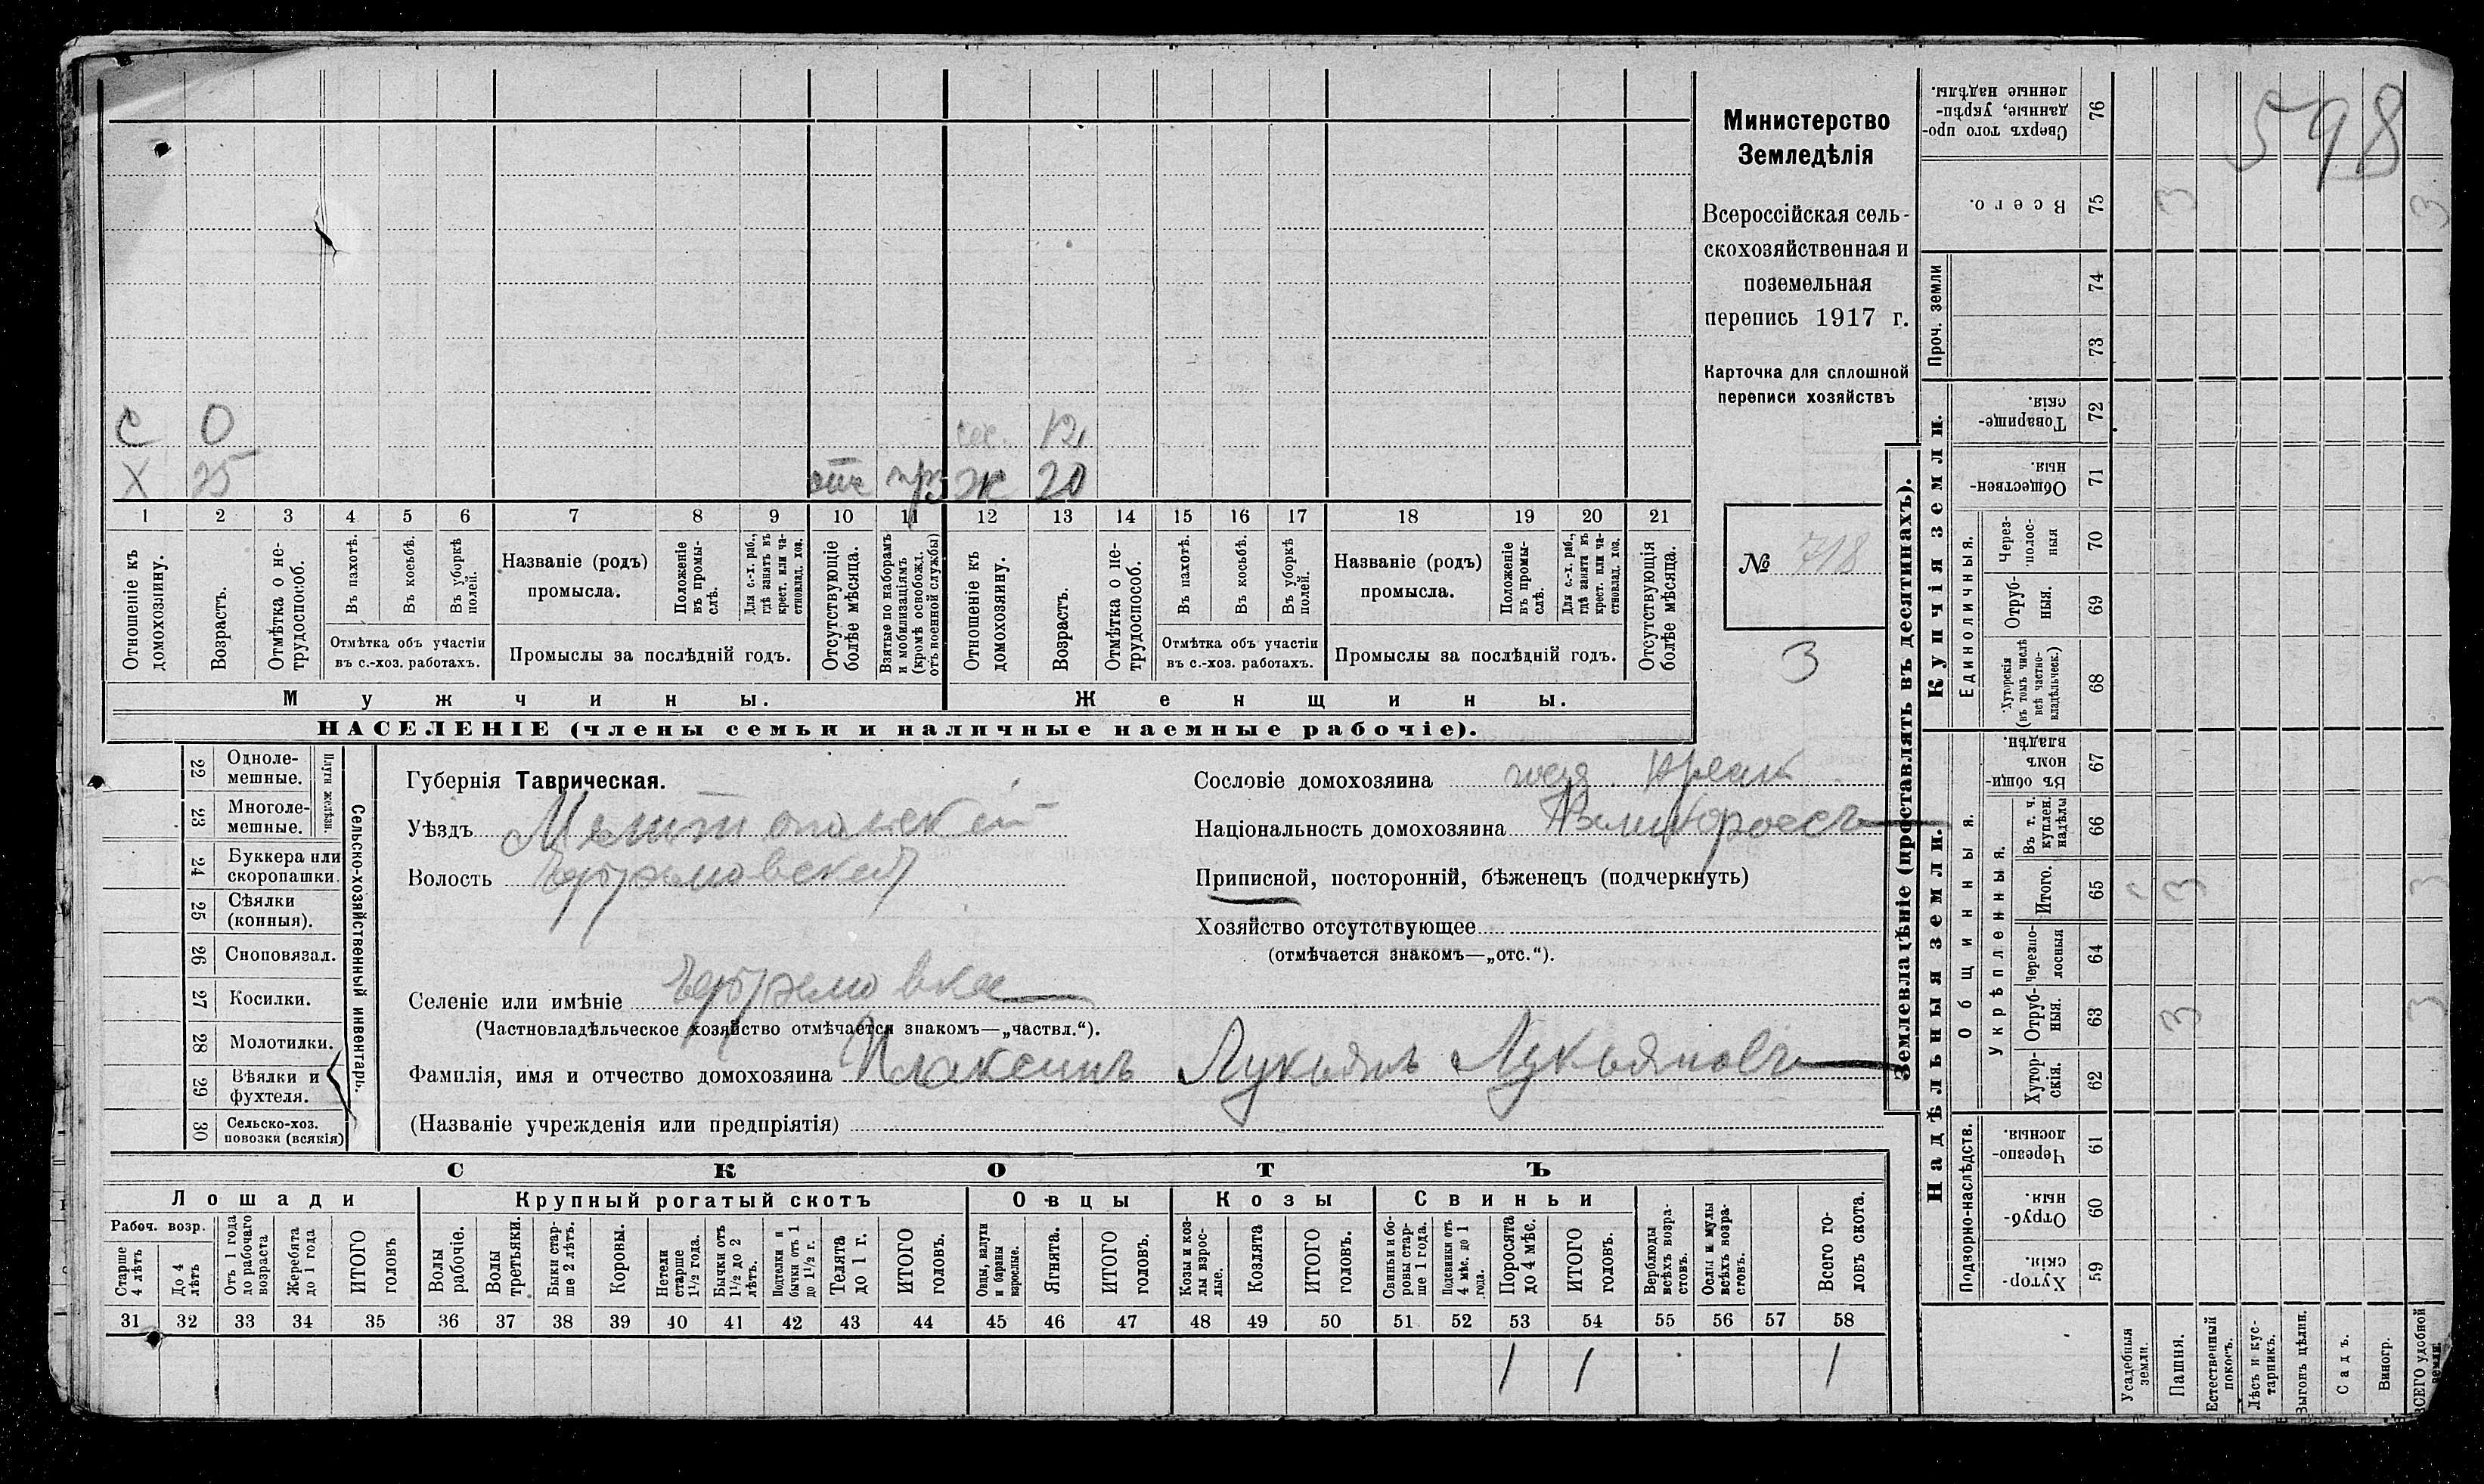 598
Министерство
Земледѣлія
Всероссійская сель-
скохозяйственная и
поземельная
перепись 1917 г.
Карточка для сплошной
переписи хозяйствъ
№ 718
3
С 0 12
Х 25 отс Ж 20
1 2 3 4 5 6 7 8 9 10 11 12 13 14 15 16 17 18 19 20 21
Отношеніе къ домохозяину.
Возрастъ.
Отмѣтка о не-трудоспособ.
Въ пахотѣ.
Въ косьбѣ.
Въ уборкѣ полей.
Отмѣтка объ участіи
въ с.-хоз. работахъ.
Названіе (родъ)
промысла.
Положеніе въ промы-слѣ.
Для с.-х. раб., гдѣ занятъ въ крест. или ча-стновлад. хоз.
Промыслы за послѣдній годъ.
Отсутствующіе болѣе мѣсяца.
Взятые по наборамъ и мобилизаціямъ (кромѣ освобожд. отъ военной службы)
Отношеніе къ домохозяину.
Возрастъ.
Отмѣтка о не-трудоспособ.
Въ пахотѣ.
Въ косьбѣ.
Въ уборкѣ полей.
Отмѣтка объ участіи
въ с.-хоз. работахъ.
Названіе (родъ)
промысла.
Положеніе въ промы-слѣ.
Для с.-х. раб., гдѣ занятъ въ крест. или ча-стновлад. хоз.
Промыслы за послѣдній годъ.
Отсутствующія болѣе мѣсяца.
Мужчины. Женщины.
НАСЕЛЕНІЕ (члены семьи и наличные наемные рабочіе).
Сельско-хозяйственный инвентарь.
Плуги желѣзн.
22 Одноле-мешные.
23 Многоле-мешные.
24 Буккера или скоропашки.
25 Сѣялки (конныя).
26 Сноповязал.
27 Косилки.
28 Молотилки.
29 Вѣялки и фухтеля.
30 Сельско-хоз. повозки (всякія)
Губернія Таврическая.
Уѣздъ Мелитопольскій
Волость Ефремовской
Селеніе или имѣніе Ефремовка
(Частновладѣльческое хозяйство отмѣчается знакомъ—„частвл.“).
Фамилія, имя и отчество домохозяина Плаксинъ Лукьянъ Лукьяновъ
(Названіе учрежденія или предпріятія)
Сословіе домохозяина
Національность домохозяина Великороссъ
Приписной, посторонній, бѣженецъ (подчеркнуть)
Хозяйство отсутствующее
(отмѣчается знакомъ—„отс.“).
СКОТЪ
Лошади Крупный рогатый скотъ Овцы Козы Свиньи
Рабоч. возр.
Старше 4 лѣтъ
До 4 лѣтъ
Отъ 1 года до рабочаго возраста
Жеребята до 1 года
ИТОГО головъ
Волы рабочіе.
Волы третьяки.
Быки стар-ше 2 лѣтъ.
Коровы.
Нетели старше 1½ года.
Бычки отъ 1½ до 2 лѣтъ.
Подтелки и бычки отъ 1 до 1½ г.
Телята до 1 г.
ИТОГО головъ.
Овцы, валухи и бараны взрослые.
Ягнята.
ИТОГО головъ.
Козы и коз-лы взрос-лые.
Козлята
ИТОГО головъ.
Свиньи и бо-ровы стар-ше 1 года.
Подсвинки отъ 4 мѣс. до 1 года.
Поросята до 4 мѣс.
ИТОГО головъ.
Верблюды всѣхъ возра-стовъ.
Ослы и мулы всѣхъ возра-стовъ.
Всего го-ловъ скота.
31 32 33 34 35 36 37 38 39 40 41 42 43 44 45 46 47 48 49 50 51 52 53 54 55 56 57 58
1 1 1
Землевладѣніе (проставлять въ десятинахъ).
Купчія земли.
Надѣльныя земли.
Сверхъ того про-данные, укрѣп-ленные надѣлы. 76
Всего. 75 3 3
Проч. земли
74
73
Товарище-скія. 72
Обществен-ныя. 71
Единоличныя.
Через-полос-ныя 70
Отруб-ныя. 69
Хуторскія (въ томъ числѣ всѣ частно-владѣльческ.) 68
Общинныя.
Въ общин-номъ владѣн. 67
Укрѣпленныя.
Въ т. ч. куплен. надѣлы 66
Итого. 65 3 3
Черезпо-лосныя 64
Отруб-ныя. 63 3 3
Хутор-скія. 62
Подворно-наслѣдств.
Черезпо-лосныя. 61
Отруб-ныя. 60
Хутор-скія. 59
Усадебныя земли.
Пашня.
Естественный покосъ.
Лѣсъ и кус-тарникъ.
Выгонъ цѣлин.
Садъ.
Виногр.
ВСЕГО удобной земли.